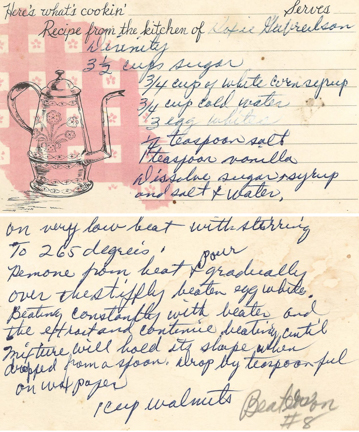 Here's what's cookin' Serves
Recipe from the kitchen of
Divinity
3½ cups sugar
3/4 cup of white corn syrup
3/4 cup cold water
3 egg whites
teaspoon salt
1 teaspoon vanilla
Dissolve sugar & syrup
and salt & water.
on very low heat with stirring
To 265 degreis.
Remone from heat & pour gradually
over the stiffly beaten egg white.
Beating constantly with beater and
the extract and continue beating until
mixture will hold its shape when
dropped from a spoon. drop by teaspoonful
on wax paper
1 cup walnuts
#8